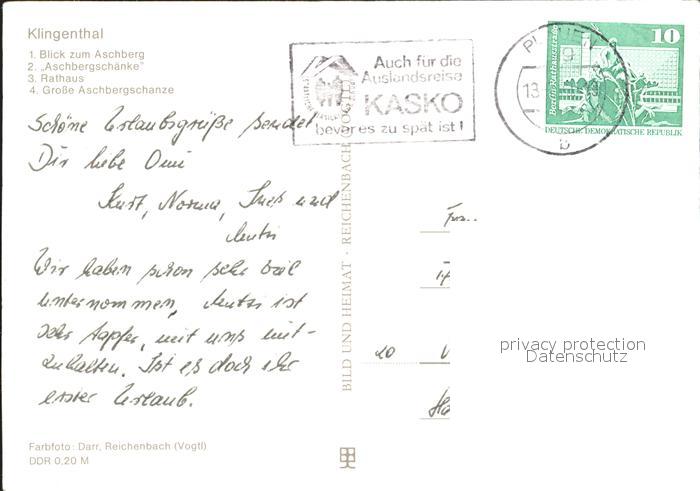 Klingenthal
1. Blick zum Aschberg
2. „Aschbergschänke"
3. Rathaus
4. Große Aschbergschanze
Auch für die
Auslandsreise
KASKO
bevor es zu spät ist!
PLAUEN
13
b
10
Berlin, Rathausstraße
DEUTSCHE DEMOKRATISCHE REPUBLIK
Schöne Urlaubsgrüße sendet
Dir liebe Omi
Kurt, Norma, Ines und
Mutti
Wir haben schon sehr viel
unternommen, Mutti ist
sehr tapfer, mit uns mit-
zuhalten. Ist es doch ihr
erster Urlaub.
BILD UND HEIMAT · REICHENBACH VOGTL
20
privacy protection
Datenschutz
Farbfoto: Darr, Reichenbach (Vogtl)
DDR 0,20 M